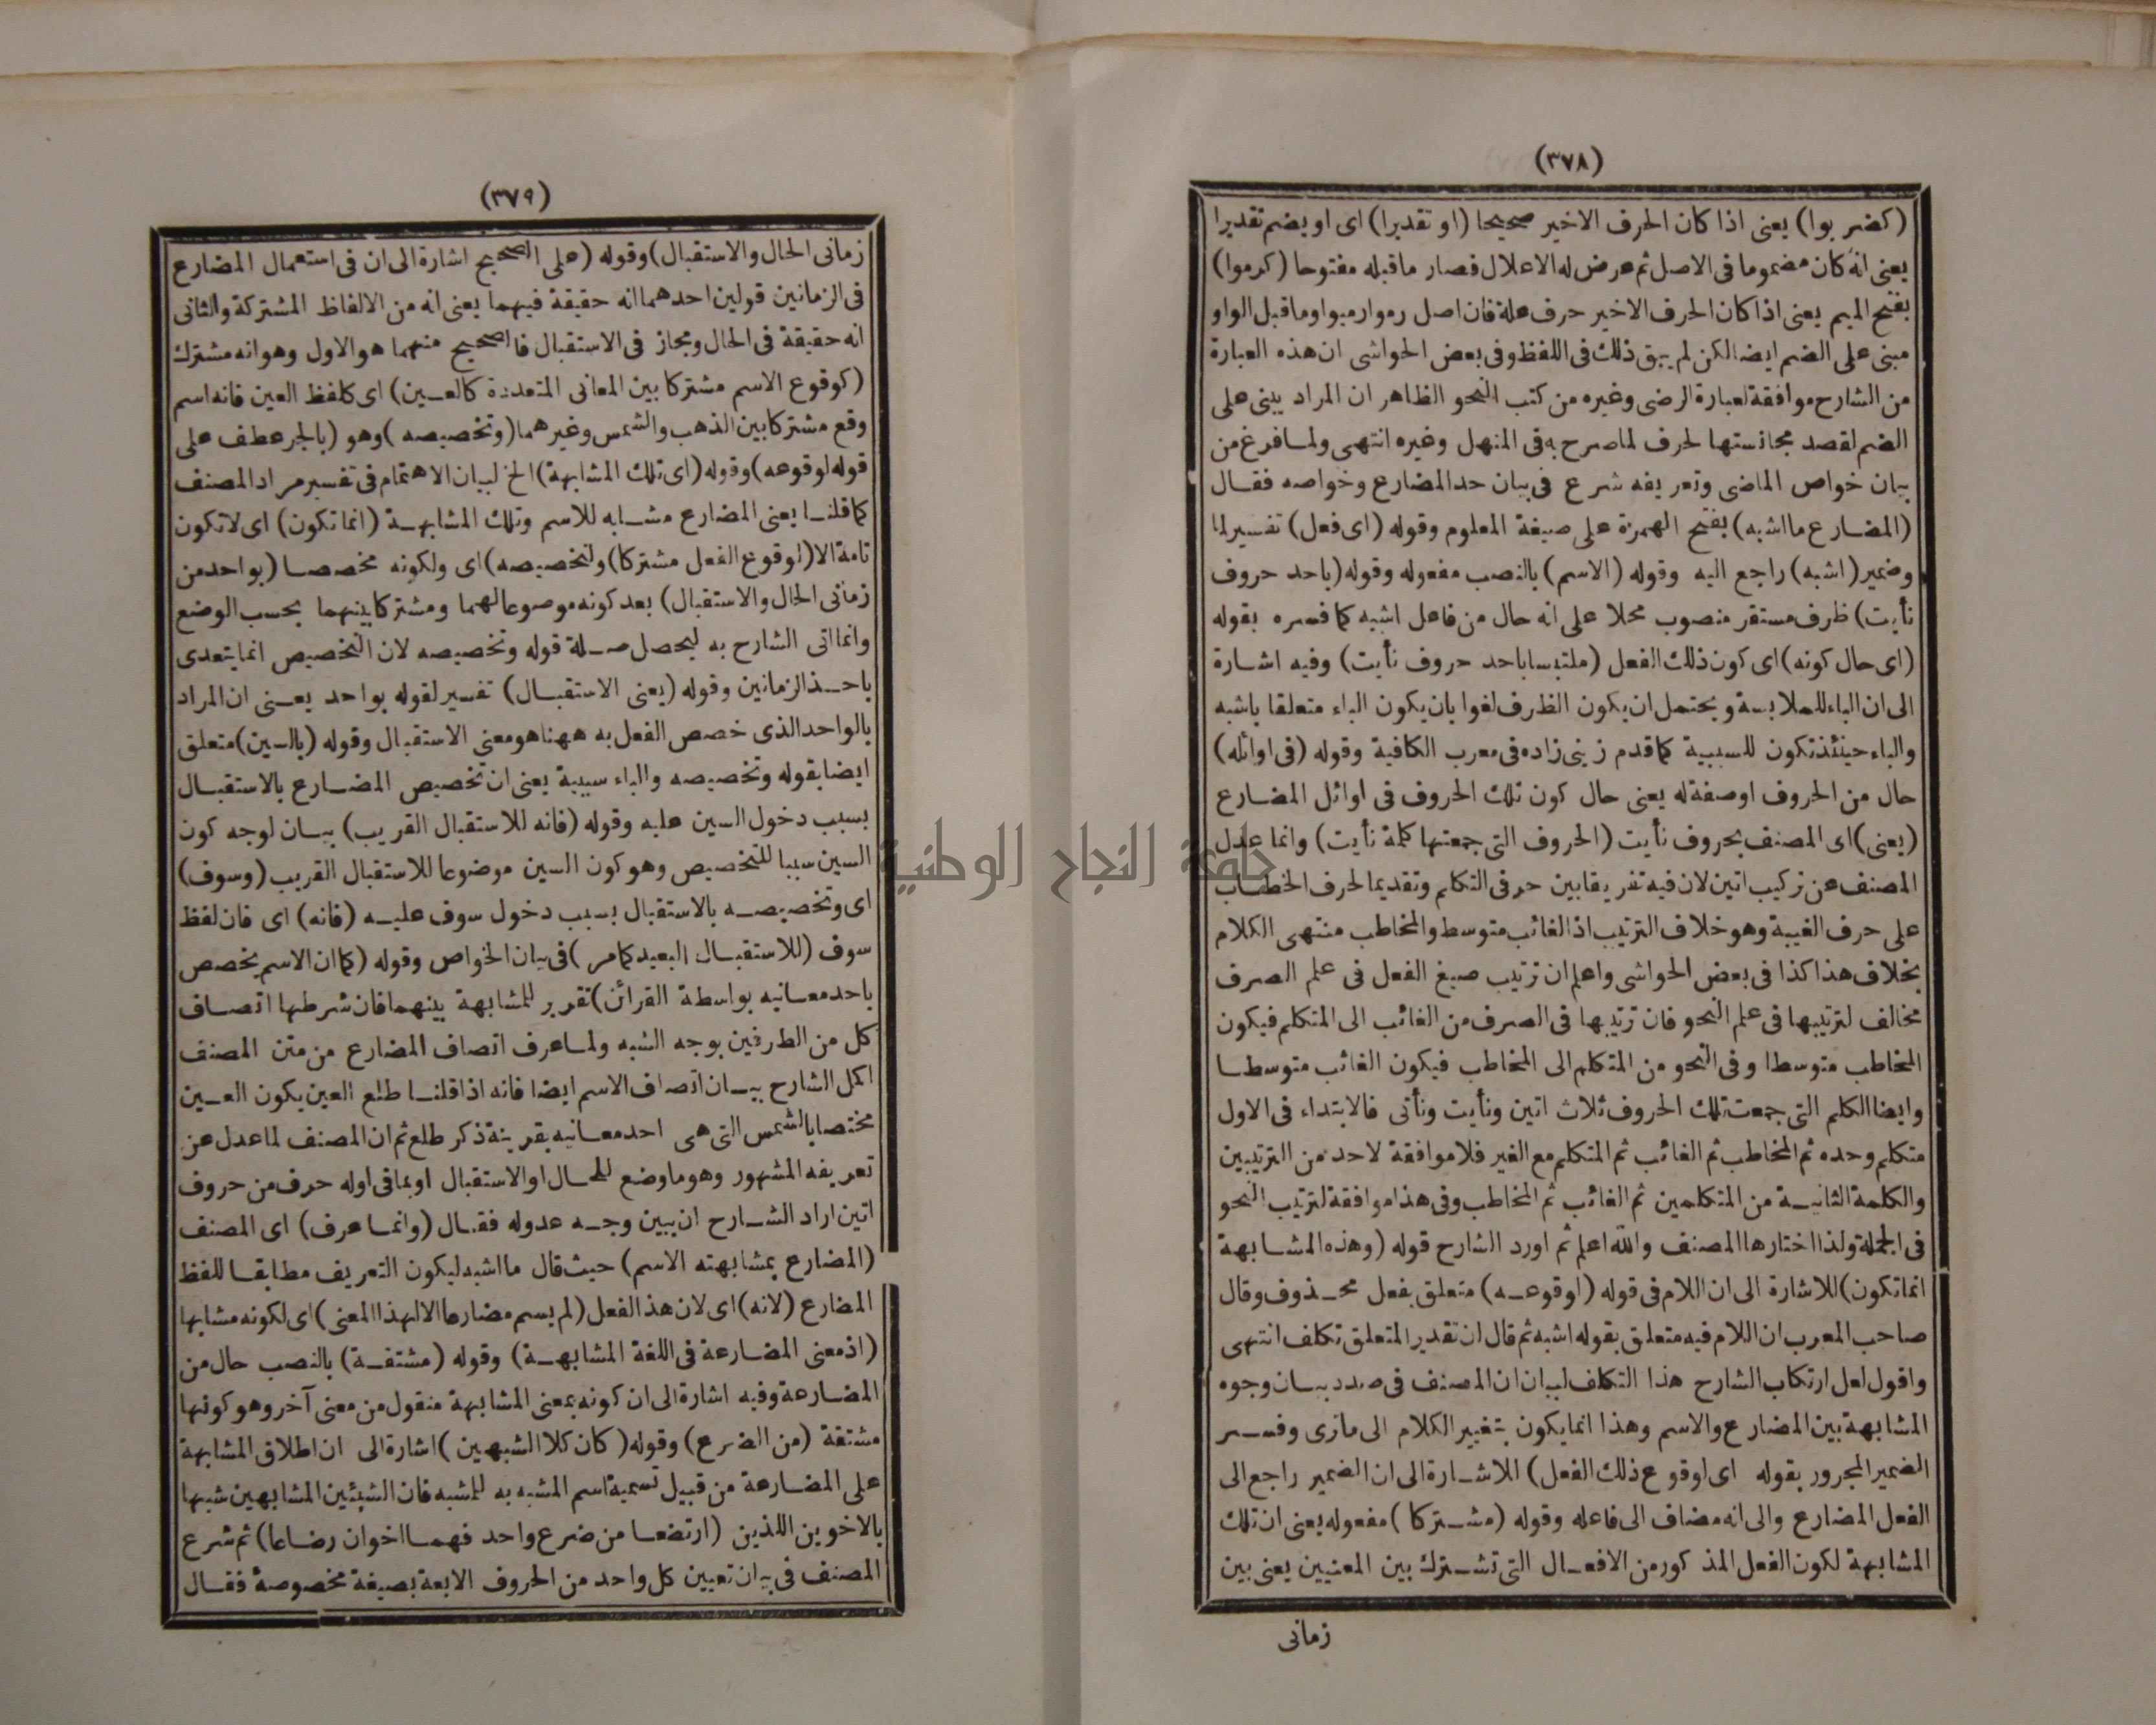 (٣٧٨)
(كضربوا) يعنى اذا كان الحرف الاخير صحيحا (او تقديرا) اى او يضم تقديرا
يعنى انه كان مضموما فى الاصل ثم عرض له الاعلال فصار ما قبله مفتوحا (كرموا)
بفتح الميم يعنى اذا كان الحرف الاخير حرف علة فان اصل رموا رميوا وما قبل الواو
مبنى على الضم ايضا لكن لم يبق ذلك فى اللفظ وفى بعض الحواشى ان هذه العبارة
من الشارح موافقة لعبارة الرضى وغيره من كتب النحو الظاهر ان المراد يبنى على
الضم لقصد مجانستها لحرف لما صرح به فى المنهل وغيره انتهى ولما فرغ من
بيان خواص الماضى وتعريفه شرع فى بيان حد المضارع وخواصه فقال
(المضارع ما اشبه) بفتح الهمزة على صيغة المعلوم وقوله (اى فعل) تفسير لما
وضمير (اشبه) راجع اليه وقوله (الاسم) بالنصب مفعوله وقوله (باحد حروف
نأيت) ظرف مستقر منصوب محلا على انه حال من فاعل اشبه كما فسره بقوله
(اى حال كونه) اى كون ذلك الفعل (ملتبسا باحد حروف نأيت) وفيه اشارة
الى ان الباء للملابسة ويحتمل ان يكون الظرف لغوا بان يكون الباء متعلقا باشبه
والباء حينئذ تكون للسببية كما قدم زينى زاده فى معرب الكافية وقوله (فى اوائله)
حال من الحروف او صفة له يعنى حال كون تلك الحروف فى اوائل المضارع
(يعنى) اى المصنف بحروف نأيت (الحروف التى جمعتها كلمة نأيت) وانما عدل
المصنف عن تركيب اتين لان فيه تفريقا بين حرفى التكلم وتقديما لحرف الخطاب
على حرف الغيبة وهو خلاف الترتيب اذ الغائب متوسط والمخاطب منتهى الكلام
بخلاف هذا كذا فى بعض الحواشى واعلم ان ترتيب صيغ الفعل فى علم الصرف
مخالف لترتيبها فى علم النحو فان ترتيبها فى الصرف من الغائب الى المتكلم فيكون
المخاطب متوسطا وفى النحو من المتكلم الى المخاطب فيكون الغائب متوسطا
وايضا الكلم التى جمعت تلك الحروف ثلاث اتين ونأيت ونأتى فالابتداء فى الاول
متكلم وحده ثم المخاطب ثم الغائب ثم المتكلم مع الغير فلا موافقة لاحد من الترتيبين
والكلمة الثانية من المتكلمين ثم الغائب ثم المخاطب وفى هذا موافقة لترتيب النحو
فى الجملة ولذا اختارها المصنف والله اعلم ثم اورد الشارح قوله (وهذه المشابهة
انما تكون) للاشارة الى ان اللام فى قوله (لوقوعه) متعلق بفعل محذوف وقال
صاحب المعرب ان اللام فيه متعلق بقوله اشبه ثم قال ان تقدير المتعلق تكلف انتهى
واقول لعل ارتكاب الشارح هذا التكلف لبيان ان المصنف فى صدد بيان وجوه
المشابهة بين المضارع والاسم وهذا انما يكون بتغيير الكلام الى ما ترى وفسر
الضمير المجرور بقوله اى لوقوع ذلك الفعل) للاشارة الى ان الضمير راجع الى
الفعل المضارع والى انه مضاف الى فاعله وقوله (مشتركا) مفعوله يعنى ان تلك
المشابهة لكون الفعل المذكور من الافعال التى تشترك بين المعنيين يعنى بين
زمانى
(٣٧٩)
زمانى الحال والاستقبال) وقوله (على الصحيح اشارة الى ان فى استعمال المضارع
فى الزمانين قولين احدهما انه حقيقة فيهما يعنى انه من الالفاظ المشتركة والثانى
انه حقيقة فى الحال ومجاز فى الاستقبال فالصحيح منهما هو الاول وهو انه مشترك
(كوقوع الاسم مشتركا بين المعانى المتعددة كالعين) اى كلفظ العين فانه اسم
وقع مشتركا بين الذهب والشمس وغيرهما (وتخصيصه) وهو (بالجر عطف على
قوله لوقوعه) وقوله (اى تلك المشابهة) الخ لبيان الاهتمام فى تفسير مراد المصنف
كما قلنا يعنى المضارع مشابه للاسم وتلك المشابهة (انما تكون) اى لا تكون
تامة الا (لوقوع الفعل مشتركا) ولتخصيصه) اى ولكونه مخصصا (بواحد من
زمانى الحال والاستقبال) بعد كونه موضوعا لهما ومشتركا بينهما بحسب الوضع
وانما اتى الشارح به ليحصل صلة قوله وتخصيصه لان التخصيص انما يتعدى
باحد الزمانين وقوله (يعنى الاستقبال) تفسير لقوله بواحد يعنى ان المراد
بالواحد الذى خصص الفعل به ههنا هو معنى الاستقبال وقوله (بالسين) متعلق
ايضا بقوله وتخصيصه والباء سببية يعنى ان تخصيص المضارع بالاستقبال
بسبب دخول السين عليه وقوله (فانه للاستقبال القريب) بيان لوجه كون
السين سببا للتخصيص وهو كون السين موضوعا للاستقبال القريب (وسوف)
اى وتخصيصه بالاستقبال بسبب دخول سوف عليه (فانه) اى فان لفظ
سوف (للاستقبال البعيد كما مر) فى بيان الخواص وقوله (كما ان الاسم يخصص
باحد معانيه بواسطة القرائن) تقرير للمشابهة بينهما فان شرطها اتصاف
كل من الطرفين بوجه الشبه ولما عرف اتصاف المضارع من متن المصنف
اكمل الشارح بيان اتصاف الاسم ايضا فانه اذا قلنا طلع العين يكون العين
مختصا بالشمس التى هى احد معانيه بقرينة ذكر طلع ثم ان المصنف لما عدل عن
تعريفه المشهور وهو ما وضع للحال او الاستقبال او بما فى اوله حرف من حروف
اتين اراد الشارح ان يبين وجه عدوله فقال (وانما عرف) اى المصنف
(المضارع بمشابهته الاسم) حيث قال ما اشبه ليكون التعريف مطابقا للفظ
المضارع (لانه) اى لان هذ الفعل (لم يسم مضارعا الا لهذا المعنى) اى لكونه مشابها
(اذ معنى المضارعة فى اللغة المشابهة) وقوله (مشتقة) بالنصب حال من
المضارعة وفيه اشارة الى ان كونه بمعنى المشابهة منقول من معنى آخر وهو كونها
مشتقة (من الضرع) وقوله (كان كلا الشبهين) اشارة الى ان اطلاق المشابهة
على المضارعة من قبيل تسمية اسم المشبه به للمشبه فان الشيئين المشابهين شبها
بالاخوين اللذين (ارتضعا من ضرع واحد فهما اخوان رضاعا) ثم شرع
المصنف فى بيان تعيين كل واحد من الحروف الابعة بصيغة مخصوصة فقال
جامعة النجاح الوطنية